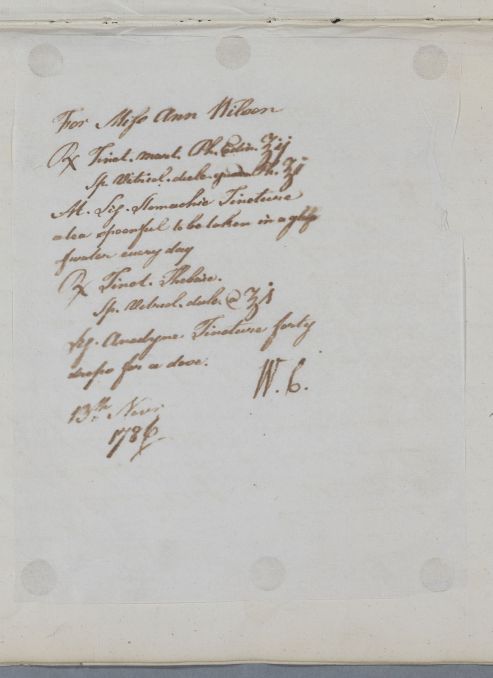 For Miss Ann Wilson
℞ Tinct. mart. Ph. Edin. ʒij
Sp. Vitriol. dulc. Ph. ʒj
M. Sig. Stomachic Tincture
a tea spoonful to be taken in a glass
of water every day
℞ Tinct. Thebaic.
Sp. Vitriol. dulc. @ ʒj
Sig. Anodyne Tincture forty
drops for a dose.
W. C.
13th. Novr.
1786